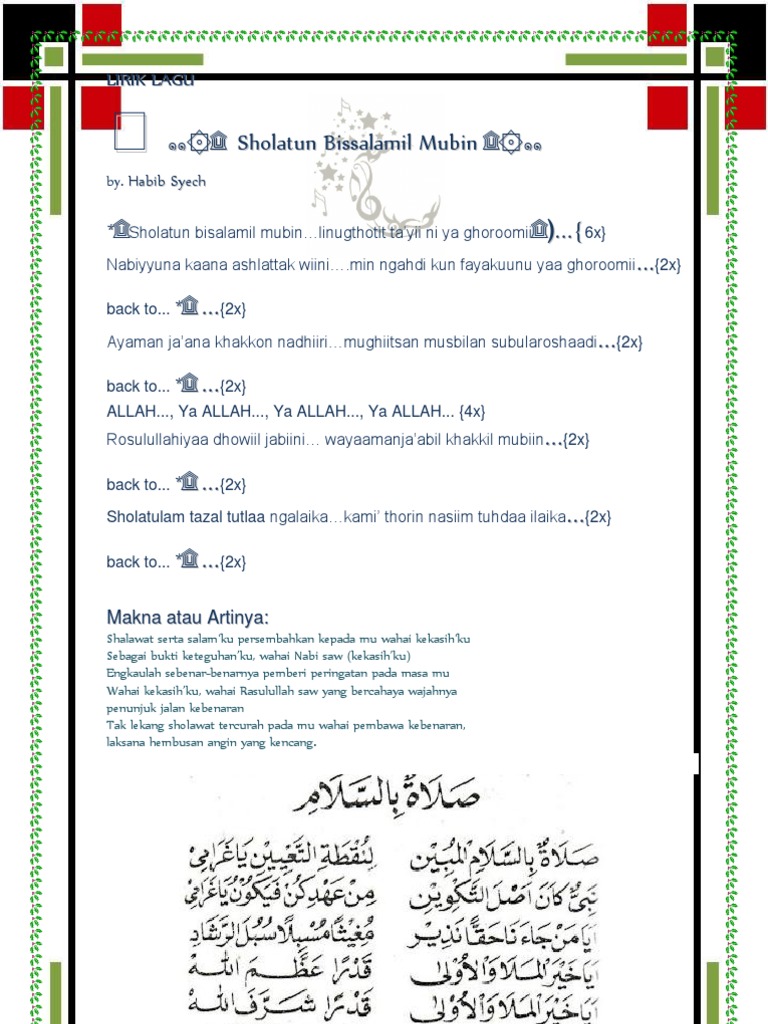 LIRIK LAGU
๑๑۞۩ Sholatun Bissalamil Mubin ۩۞๑๑
by. Habib Syech
*۩Sholatun bisalamil mubin…linugthotit ta'yii ni ya ghoroomii۩)…{ 6x}
Nabiyyuna kaana ashlattak wiini….min ngahdi kun fayakuunu yaa ghoroomii…{2x}
back to... *۩ …{2x}
Ayaman ja'ana khakkon nadhiiri…mughiitsan musbilan subularoshaadi…{2x}
back to... *۩ …{2x}
ALLAH..., Ya ALLAH..., Ya ALLAH..., Ya ALLAH... {4x}
Rosulullahiyaa dhowiil jabiini… wayaamanja'abil khakkil mubiin…{2x}
back to... *۩ …{2x}
Sholatulam tazal tutlaa ngalaika…kami' thorin nasiim tuhdaa ilaika…{2x}
back to... *۩ …{2x}
Makna atau Artinya:
Shalawat serta salam'ku persembahkan kepada mu wahai kekasih'ku
Sebagai bukti keteguhan'ku, wahai Nabi saw (kekasih'ku)
Engkaulah sebenar-benarnya pemberi peringatan pada masa mu
Wahai kekasih'ku, wahai Rasulullah saw yang bercahaya wajahnya
penunjuk jalan kebenaran
Tak lekang sholawat tercurah pada mu wahai pembawa kebenaran,
laksana hembusan angin yang kencang.
صَلَاةٌ بِالسَّلَامِ
صَلَاةٌ بِالسَّلَامِ الْمُبِيْنِ لِنُقْطَةِ التَّعْيِيْنِ يَاغَرَامِيْ
نَبِيٌّ كَانَ اَصْلَ التَّكْوِيْنِ مِنْ عَهْدِ كُنْ فَيَكُوْنُ يَاغَرَامِيْ
اَيَا مَنْ جَاءَنَا حَقًّا نَذِيْر مُغِيْثًا مُسْبِلًا سُبُلَ الرَّشَادِ
اَيَاخَيْرَ الْمَلَا وَالْاُوْلٰى قَدْرًا عَظَّمَ اللهْ
اَيَاخَيْرَ الْمَلَا وَالْاُوْلٰى قَدْرًا شَرَّفَ اللهْ